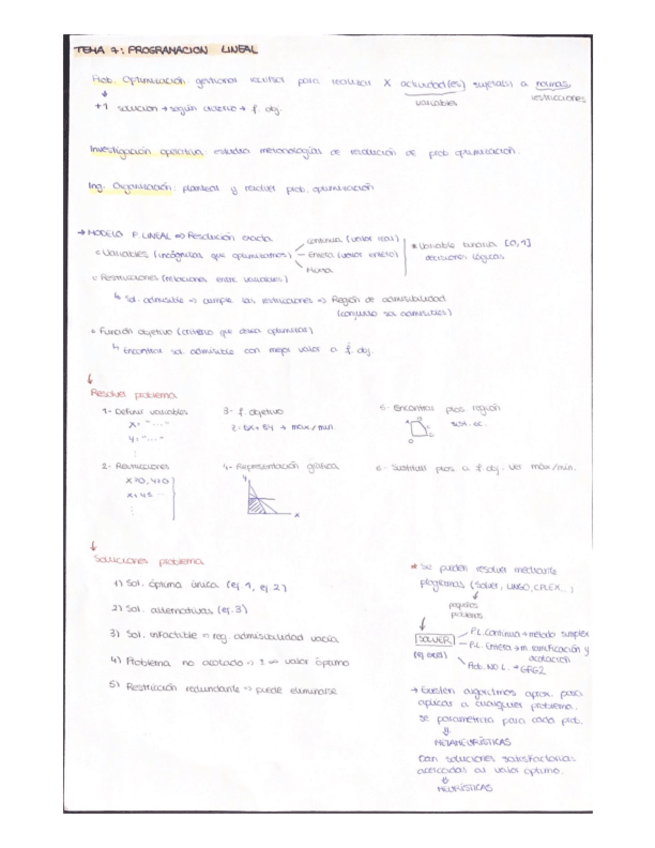 TEMA 7: PROGRAMACION LINEAL
Prob. Optimización: gestionar recursos para realizar X actividad(es) sujeta(s) a normas
variables restricciones
+1 solución → según criterio → f. obj.
Investigación operativa: estudia metodologías de resolución de prob optimización.
Ing. Organización: plantear y resolver prob. optimización
→ MODELO P. LINEAL => Resolución exacta
Variables (incógnitas que optimizamos)
continua (valor real)
Entera (valor entero)
* Variable binaria [0,1]
decisiones lógicas
Restricciones (relaciones entre variables)
↳ Sol. admisible => cumple las restricciones => Región de admisibilidad
(conjunto sol admisibles)
Función objetivo (criterio que desea optimizar)
↳ Encontrar sol. admisible con mejor valor a f. obj.
Resolver problema
1- Definir variables
x = "..."
y = "..."
2- Restricciones
x≥0, y≥0
3- f. objetivo
→ max/min.
4- Representación gráfica
y
x
5- Encontrar ptos. región
6- Sustituir ptos. a f. obj. ver máx/min.
Soluciones problema
1) Sol. óptima única (ej 1, ej 2)
2) Sol. alternativas (ej. 3)
3) Sol. infactible => reg. admisibilidad vacía
4) Problema no acotado => 1 ∞ valor óptimo
5) Restricción redundante => puede eliminarse
* Se pueden resolver mediante
programas (Solver, LINGO, CPLEX...)
pequeños
problemas
SOLVER
(ej excel)
P.L. Continua → método simplex
P.L. Entera → m. ramificación y
acotación
Prob. NO L. → GRG2
→ Existen algoritmos aprox. para
aplicar a cualquier problema.
Se parametriza para cada prob.
METAHEURÍSTICAS
Dan soluciones satisfactorias
acercadas al valor óptimo.
HEURÍSTICAS